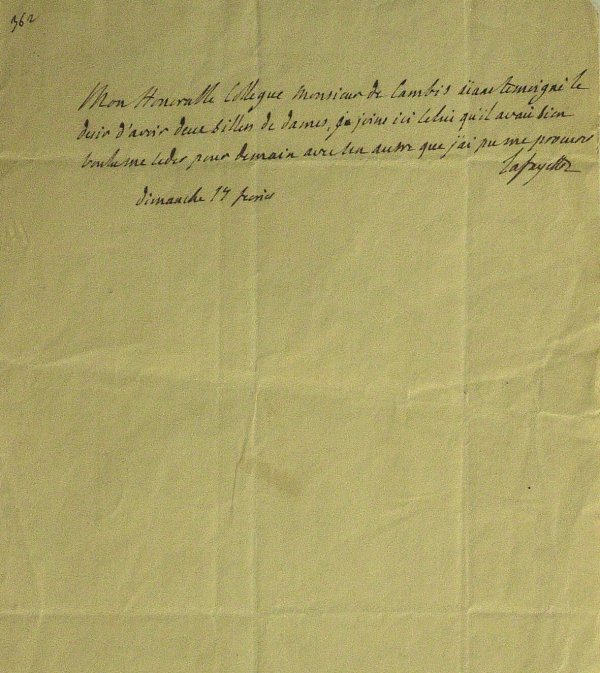 362
Mon Honorable Collègue Monsieur de Cambis aïant temoigné le
desir d'avoir deux billets de dames, je joins ici celui qu'il avait bien
voulu me ceder pour demain avec un autre que j'ai pu me procurer
Lafayette
dimanche 17 fevrier